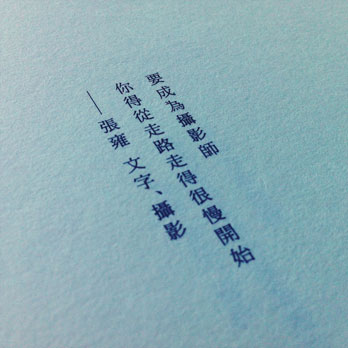 要成為攝影師
你得從走路走得很慢開始
——張雍 文字、攝影